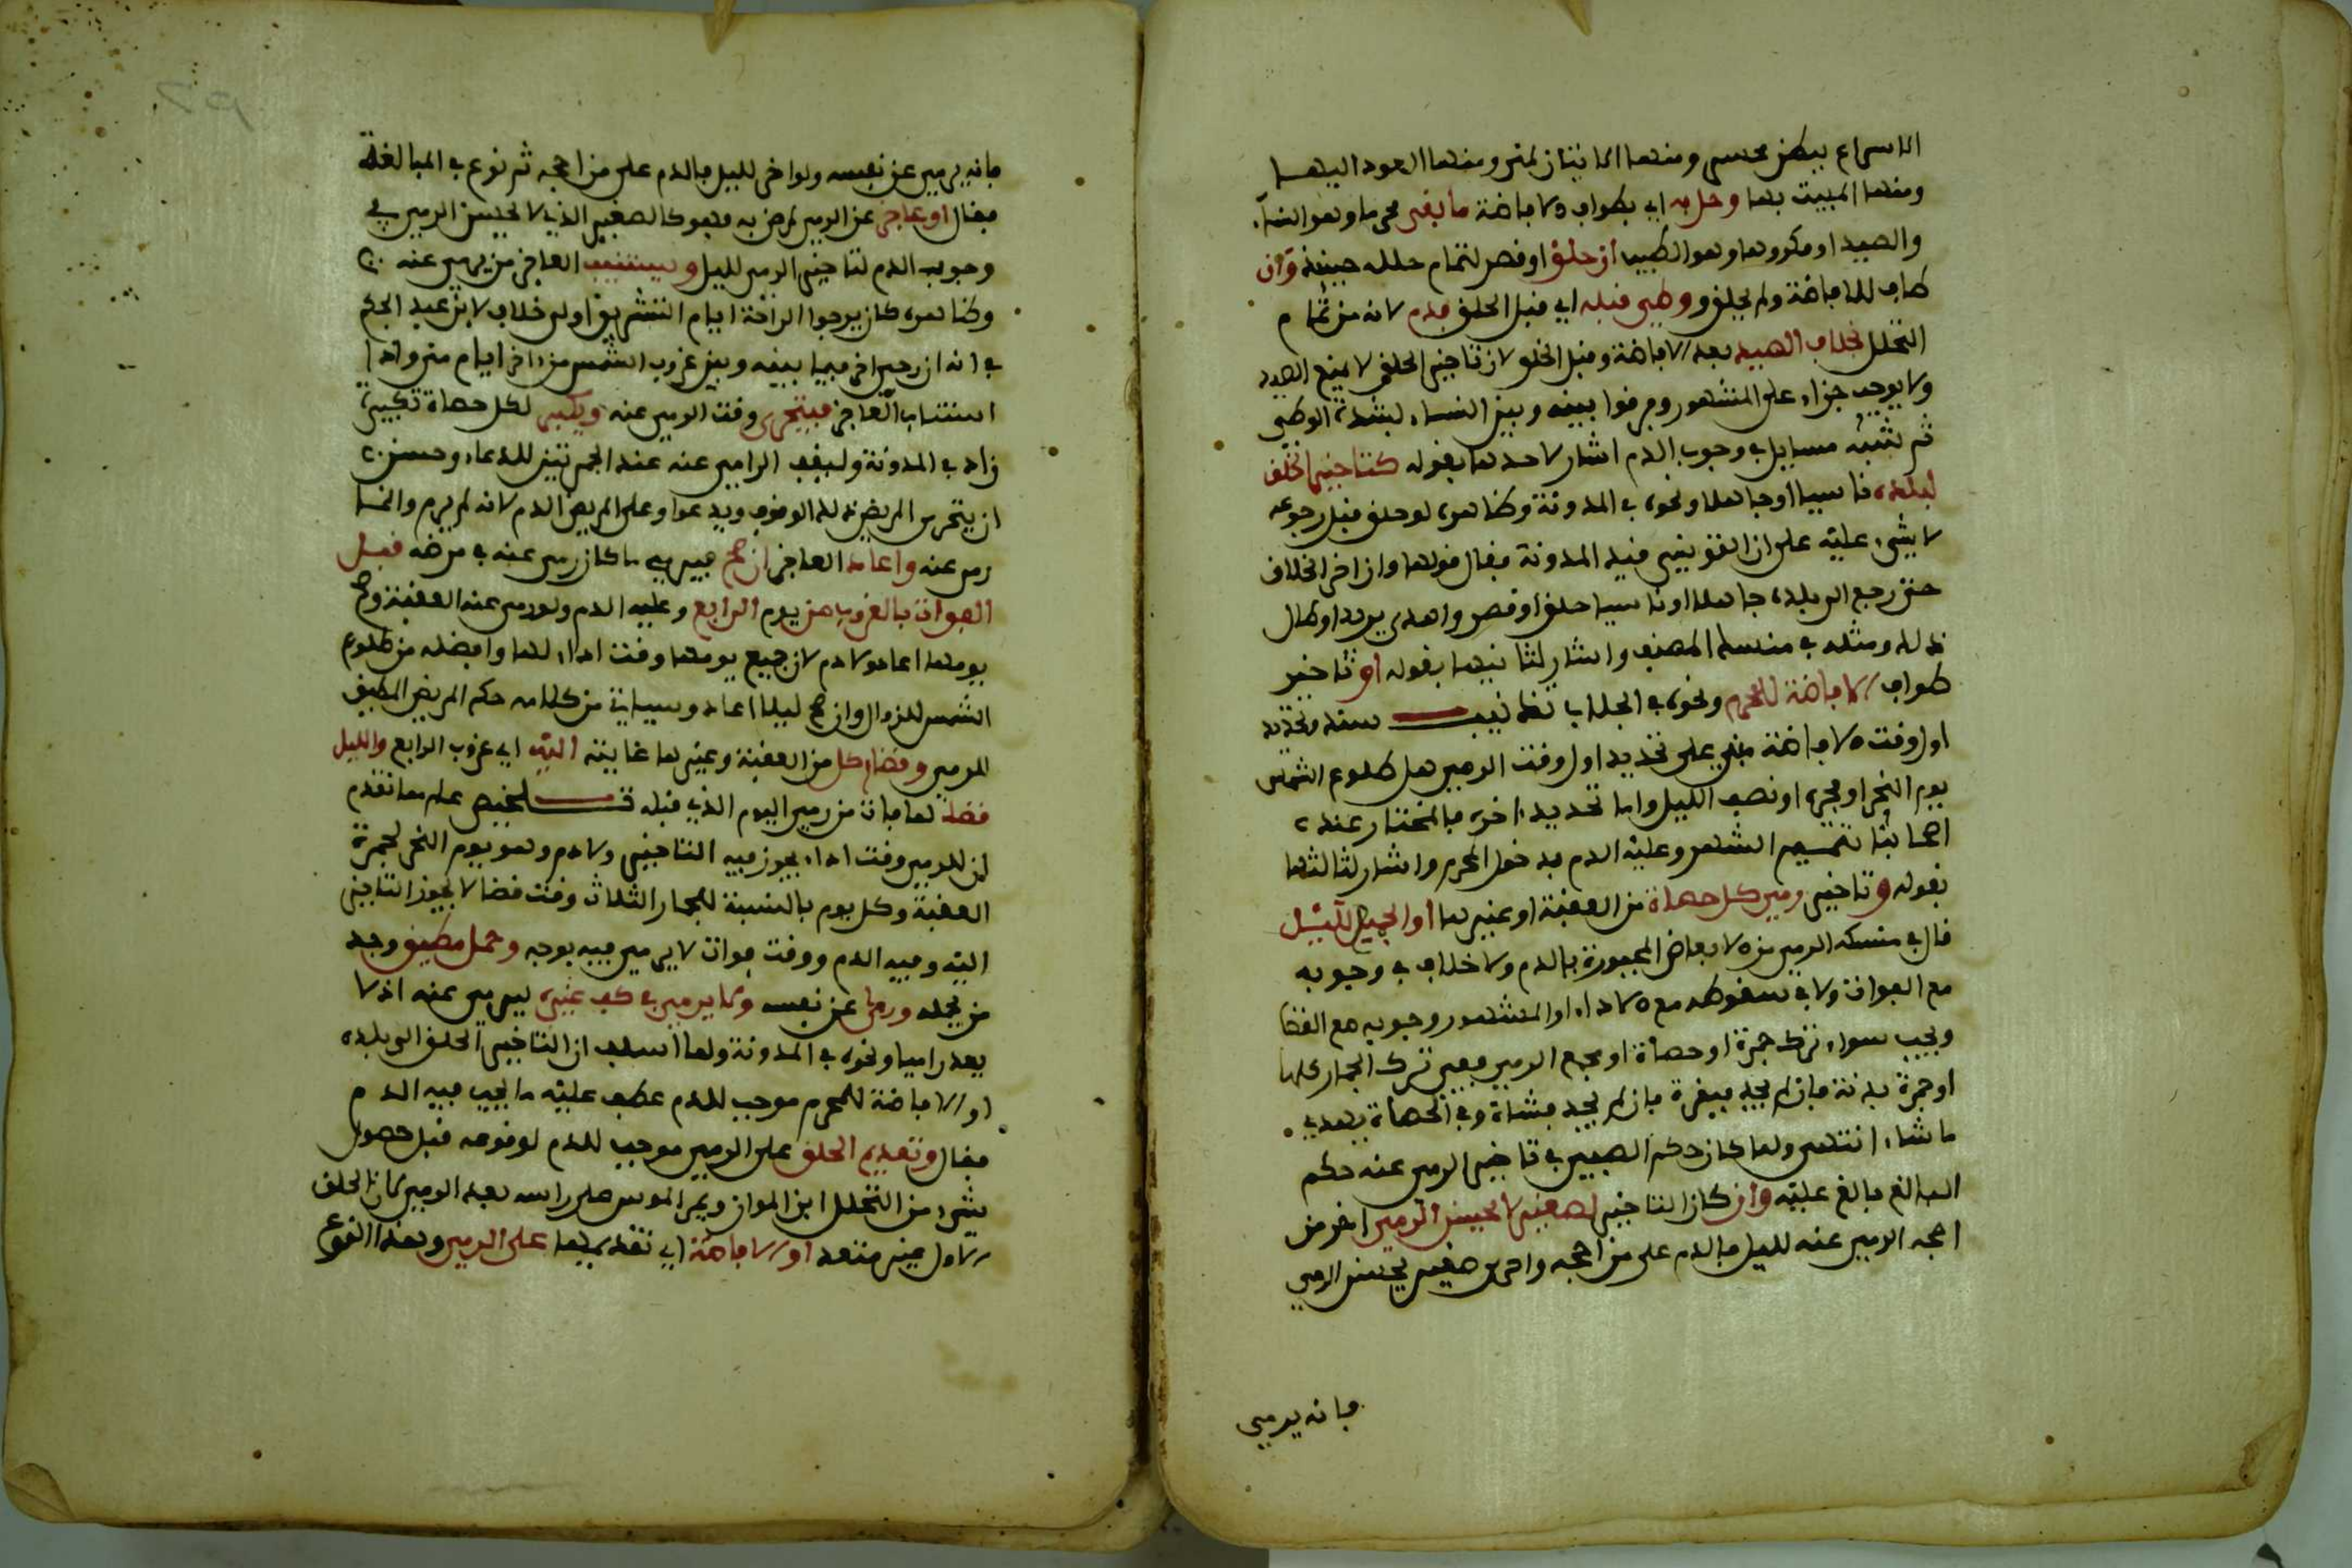 الاسراع ببطن محسر ومنها الاتيان لمنى ومنها العود اليها
ومنها المبيت بها وحل به اي بطواف الافاضة ما بقي محرما وهو النساء
والصيد او مكروها وهو الطيب ان حلق او قصر لتمام حلله حينئذ وان
طاف للافاضة ولم يحلق ووطئ قبله اي قبل الحلق فدم لانه من تمام
التحلل بخلاف الصيد بعد الافاضة وقبل الحلق لان تاخير الحلق لا يمنع الصيد
ولا يوجب جزاء على المشهور وفرقوا بينه وبين النساء لشدة الوطئ
ثم شبه مسايل في وجوب الدم اشار لاحدها بقوله كتاخير الحلق
لبلده ناسيا او جاهلا ونحوه في المدونة وظاهره لو حلق قبل رجوعه
لا شيء عليه على ان التونسي قيد المدونة فقال قولها وان اخر الحلاق
حتى رجع الى بلده جاهلا او ناسيا حلق او قصر واهدى يريد او طال
ذلك ومثله في منسك المصنف واشار لثانيها بقوله او تاخير
طواف الافاضة للمحرم ونحوه في الجلاب تذنيب سند وتحديد
اول وقت الافاضة مبني على تحديد اول وقت الرمي هل طلوع الشمس
يوم النحر او فجره او نصف الليل واما تحديد اخره فالمختار عند
اصحابنا تتميم الشهر وعليه الدم بدخول المحرم واشار لثالثها
بقوله وتاخير رمي كل حصاة من العقبة او غيرها او الجميع لليل
قال في منسكه الرمي من الابعاض المجبورة بالدم ولا خلاف في وجوبه
مع الفوات ولا في سقوطه مع الاداء والمشهور وجوبه مع القضا
ويجب سواء ترك جمرة او حصاة او جميع الرمي ففي ترك الجمار كلها
او جمرة بدنة فان لم يجد فبقرة فان لم يجد فشاة وفي الحصاة يهدي
ما شاء انتهى ولما كان حكم الصبي في تاخير الرمي عنه حكم
البالغ بالغ عليه وان كان التاخير لصغير لا يحسن الرمي اخر من
احجه الرمي عنه لليل فالدم على من احجه واحرى صغير يحسن الرمي
فانه يرمي
فانه يرمي عن نفسه ولو اخر لليل فالدم على من احجه ثم نوع في المبالغة
فقال او عاجز عن الرمي لمرض به فهو كالصغير الذي لا يحسن الرمي في
وجوب الدم لتاخير الرمي لليل ويستنيب العاجز من يرمي عنه
وظاهره كان يرجوا الراحة ايام التشريق او لا خلاف لابن عبد الحكم
في انه ان رجى اخر فيما بينه وبين غروب الشمس من اخر ايام منى واذا
استناب العاجز فيتحرى وقت الرمي عنه ويكبر لكل حصاة تكبيرة
زاد في المدونة وليقف الرامي عنه عند الجمرتين للدعاء وحسن
ان يتحرى المريض ذلك الوقوف ويدعوا وعلى المريض الدم لانه لم يرم وانما
رمي عنه واعاد العاجز ان صح فيرمي ما كان رمي عنه في مرضه قبل
الفوات بالغروب من يوم الرابع وعليه الدم ولو رمي عنه العقبة وصح
يومها اعاد ولا دم لان جميع يومها وقت اداء لها وافضله من طلوع
الشمس للزوال وان صح ليلا اعاد وسياتي من كلامه حكم المريض المطيق
للرمي وقضاء كل من العقبة وغيرها غايته اليه اي غروب الرابع والليل
قضاء لما فات من رمي اليوم الذي قبله تلخيص علم مما تقدم
ان للرمي وقت اداء يجوز فيه التاخير ولا دم وهو يوم النحر لجمرة
العقبة وكل يوم بالنسبة للجمار الثلاث ووقت قضا لا يجوز التاخير
اليه وفيه الدم ووقت فوات لا يرمي فيه بوجه وحمل مطيق وجد
من يحمله ورمى عن نفسه ولا يرمي في كف غيره ليرمي عنه اذ لا
يعد راميا ونحوه في المدونة ولما اسلف ان التاخير الحلق الى بلده
او الافاضة للمحرم موجب للدم عطف عليه ما يجب فيه الدم
فقال وتقديم الحلق على الرمي موجب للدم لوقوعه قبل حصول
شيء من التحلل ابن المواز ويمر الموس على راسه بعد الرمي لان الحلق
الاول غير متعد او الافاضة اي تقديمها على الرمي وهذا النوع